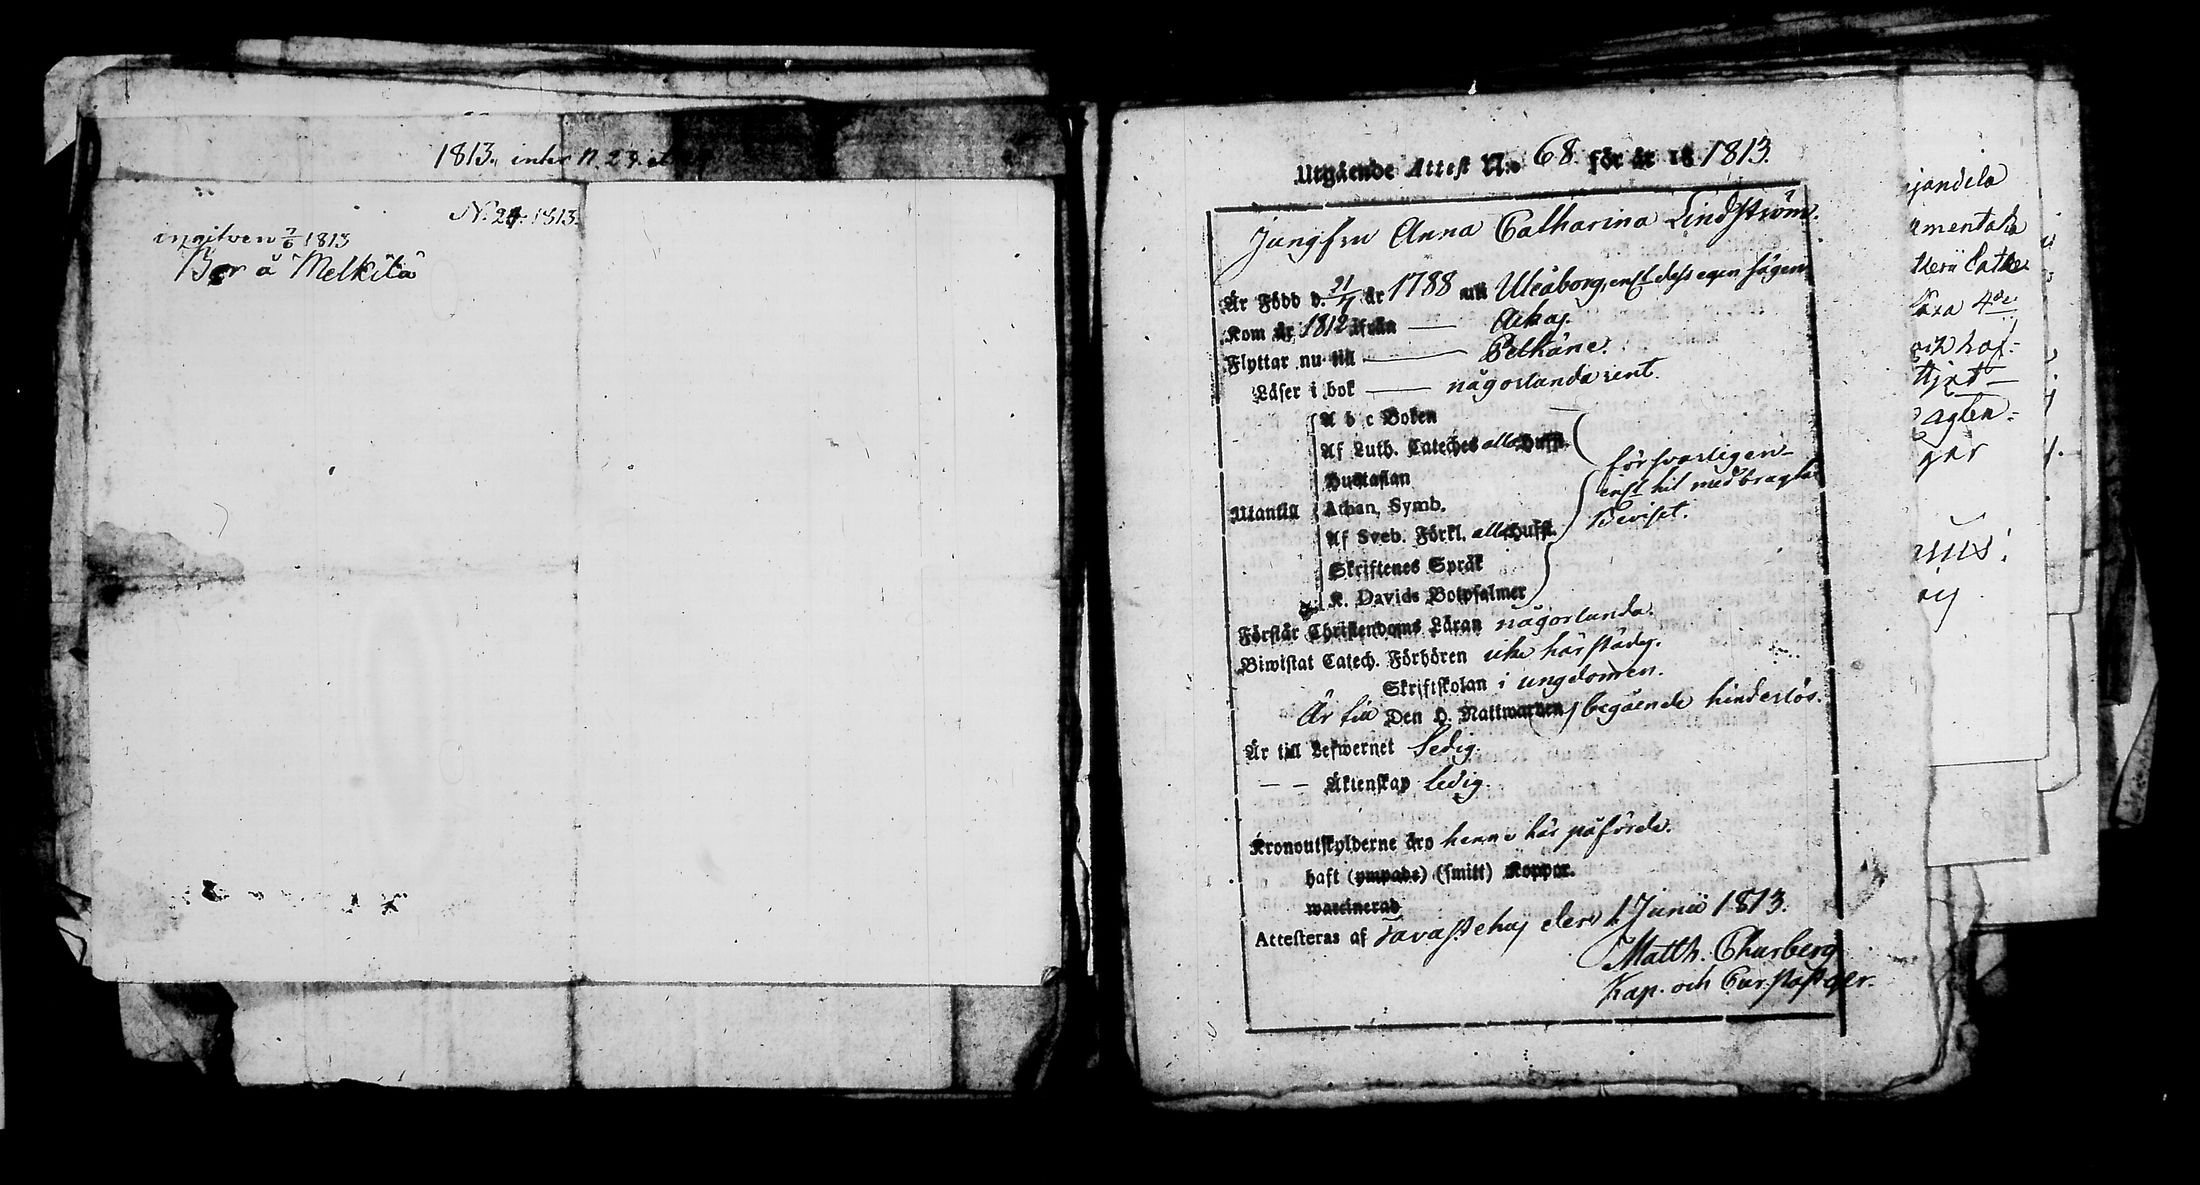 1813. inter N. 23. et
N. 24. 1813.
ingifven 7/6 1813
Bor å Melkilä
Utgående Attest N:o 68. för år 18 1813.
Jungfru Anna Catharina Lindström.
Är Född d. 21/11 år 1788 uti Uleåborg, enl. dess egen sägen
Kom år 1812 ifrån — Achas.
Flyttar nu till — Pelkäne.
Läser i bok — någorlunda rent.
A b c Boken
Af Luth. Cateches alla Hufst.
Hustaflan
försvarligen
enl. hit medbragta
Beviset.
Utantill
Athan. Symb.
Af Sveb. Förkl. alla Hufst.
Skriftenes Språk
K. Davids Botpsalmer
Förstår Christendoms Läran någorlunda.
Biwistat Catech. Förhören icke härstädes.
Skriftskolan i ungdomen.
Är till Den H. Nattwarden begående hinderlös.
Är till Lefwernet Ledig.
— — Äktenskap Ledig.
Kronoutskylderne äro henne här påförde.
haft (ympade) (smitt) Koppor.
waccinerad
Attesteras af Tavastehus den 1 Junii 1813.
Matth. Charberg
Kap. och
jandela
amentaha
Cathe
4de
och haf:
agten
gar